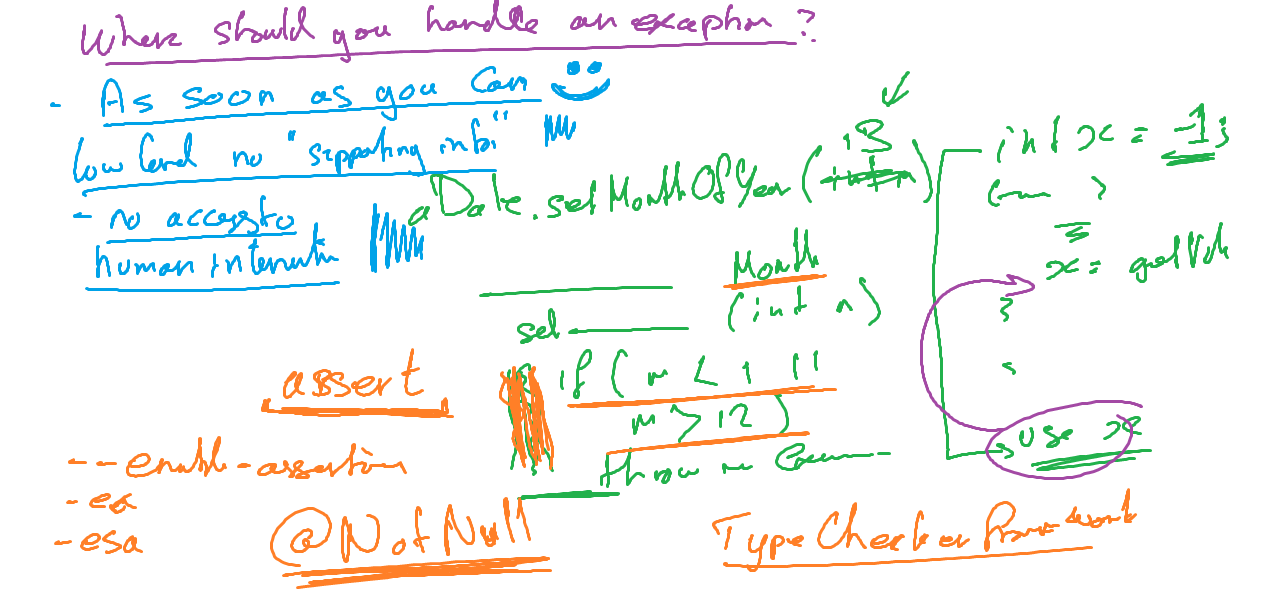 Where should you handle an exception?
- As soon as you can
low level no "supporting info"
- no access to
human interventi
aDate.setMonthOfYear(13)
int x = -1;
x = getVal
}
use x
Month
(int n)
set
if (m < 1 ||
m > 12)
throw
assert
--enable-assertion
-ea
-esa
@NotNull
Type Checker Framework